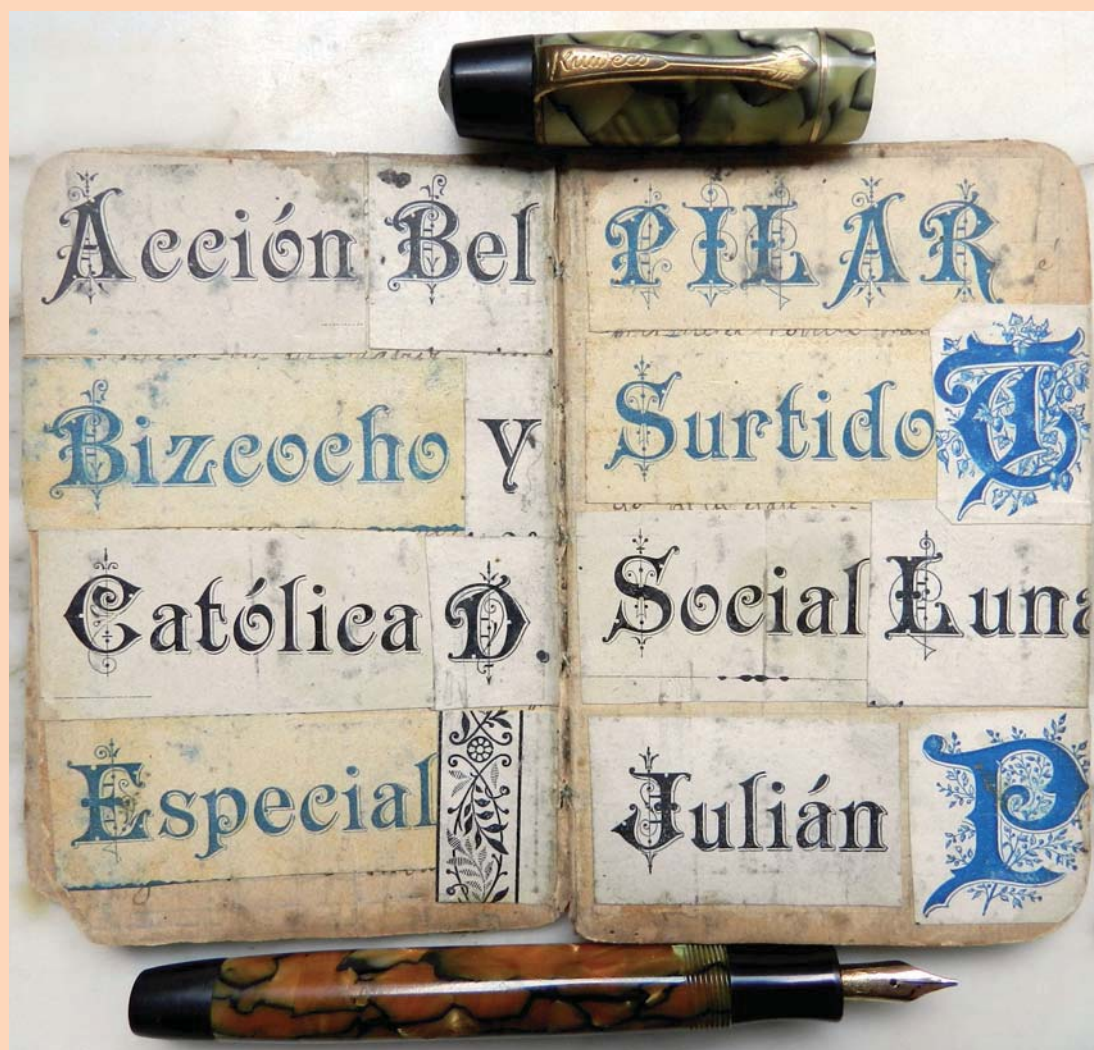 Kaweco
Acción Bel
Bizcocho y
Católica D.
Especial
PILAR
Surtido T
Social Luna
Julián P